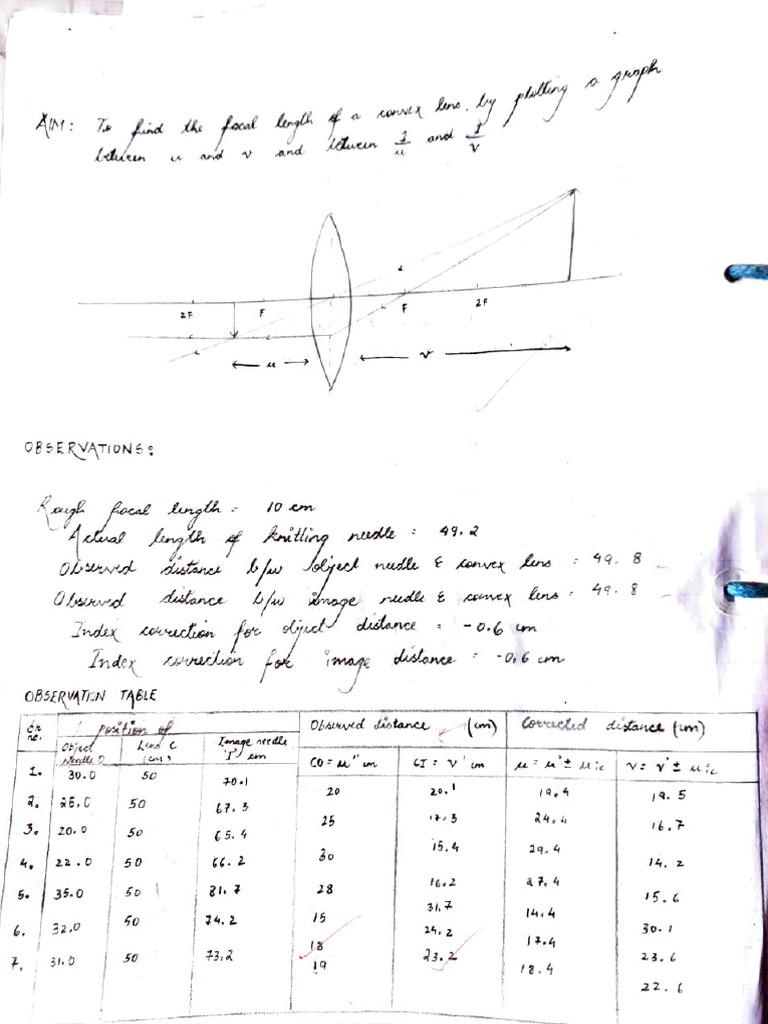 AIM: To find the focal length of a convex lens, by plotting a graph
between u and v and between 1/u and 1/v
2F F F 2F
u v
OBSERVATIONS:
Rough focal length = 10 cm
Actual length of knitting needle = 49.2
Observed distance b/w object needle & convex lens = 49.8
Observed distance b/w image needle & convex lens = 49.8
Index correction for object distance = -0.6 cm
Index correction for image distance = -0.6 cm
OBSERVATION TABLE
Sr no. Position of Observed distance (cm) Corrected distance (cm)
Object Needle O Lens C (cm) Image needle 'I' cm CO = u" cm CI = v' cm u = u' ± u ic v = v' ± u ic
1. 30.0 50 70.1 20 20.1 19.4 19.5
2. 25.0 50 67.3 25 17.3 24.4 16.7
3. 20.0 50 65.4 30 15.4 29.4 14.2
4. 22.0 50 66.2 28 16.2 27.4 15.6
5. 35.0 50 81.7 15 31.7 14.4 30.1
6. 32.0 50 74.2 18 24.2 17.4 23.6
7. 31.0 50 73.2 19 23.2 18.4 22.6